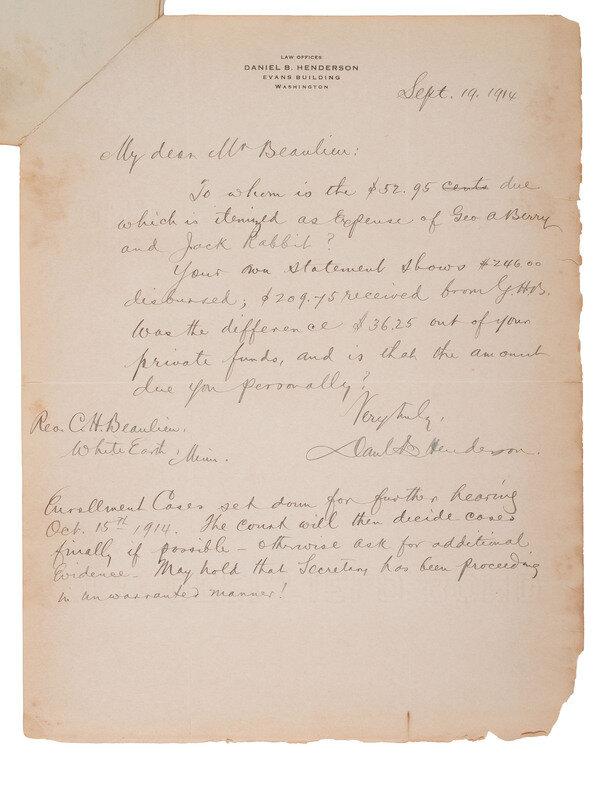 LAW OFFICES
DANIEL B. HENDERSON
EVANS BUILDING
WASHINGTON
Sept. 19. 1914
My dear Mr Beaulieu:
To whom is the $52.95 cents due
which is itemized as Expense of Geo A Berry
and Jack Rabbit?
Your own statement shows $246.00
disbursed; $209.75 received from G.H.B.
Was the difference $36.25 out of your
private funds, and is that the amount
due you personally?
Very truly,
Danl B Henderson.
Rev. C.H. Beaulieu,
White Earth, Minn.
Enrollment Cases set down for further hearing
Oct. 15th 1914. The court will then decide cases
finally if possible - otherwise ask for additional
Evidence - May hold that Secretary has been proceeding
in unwarranted manner!